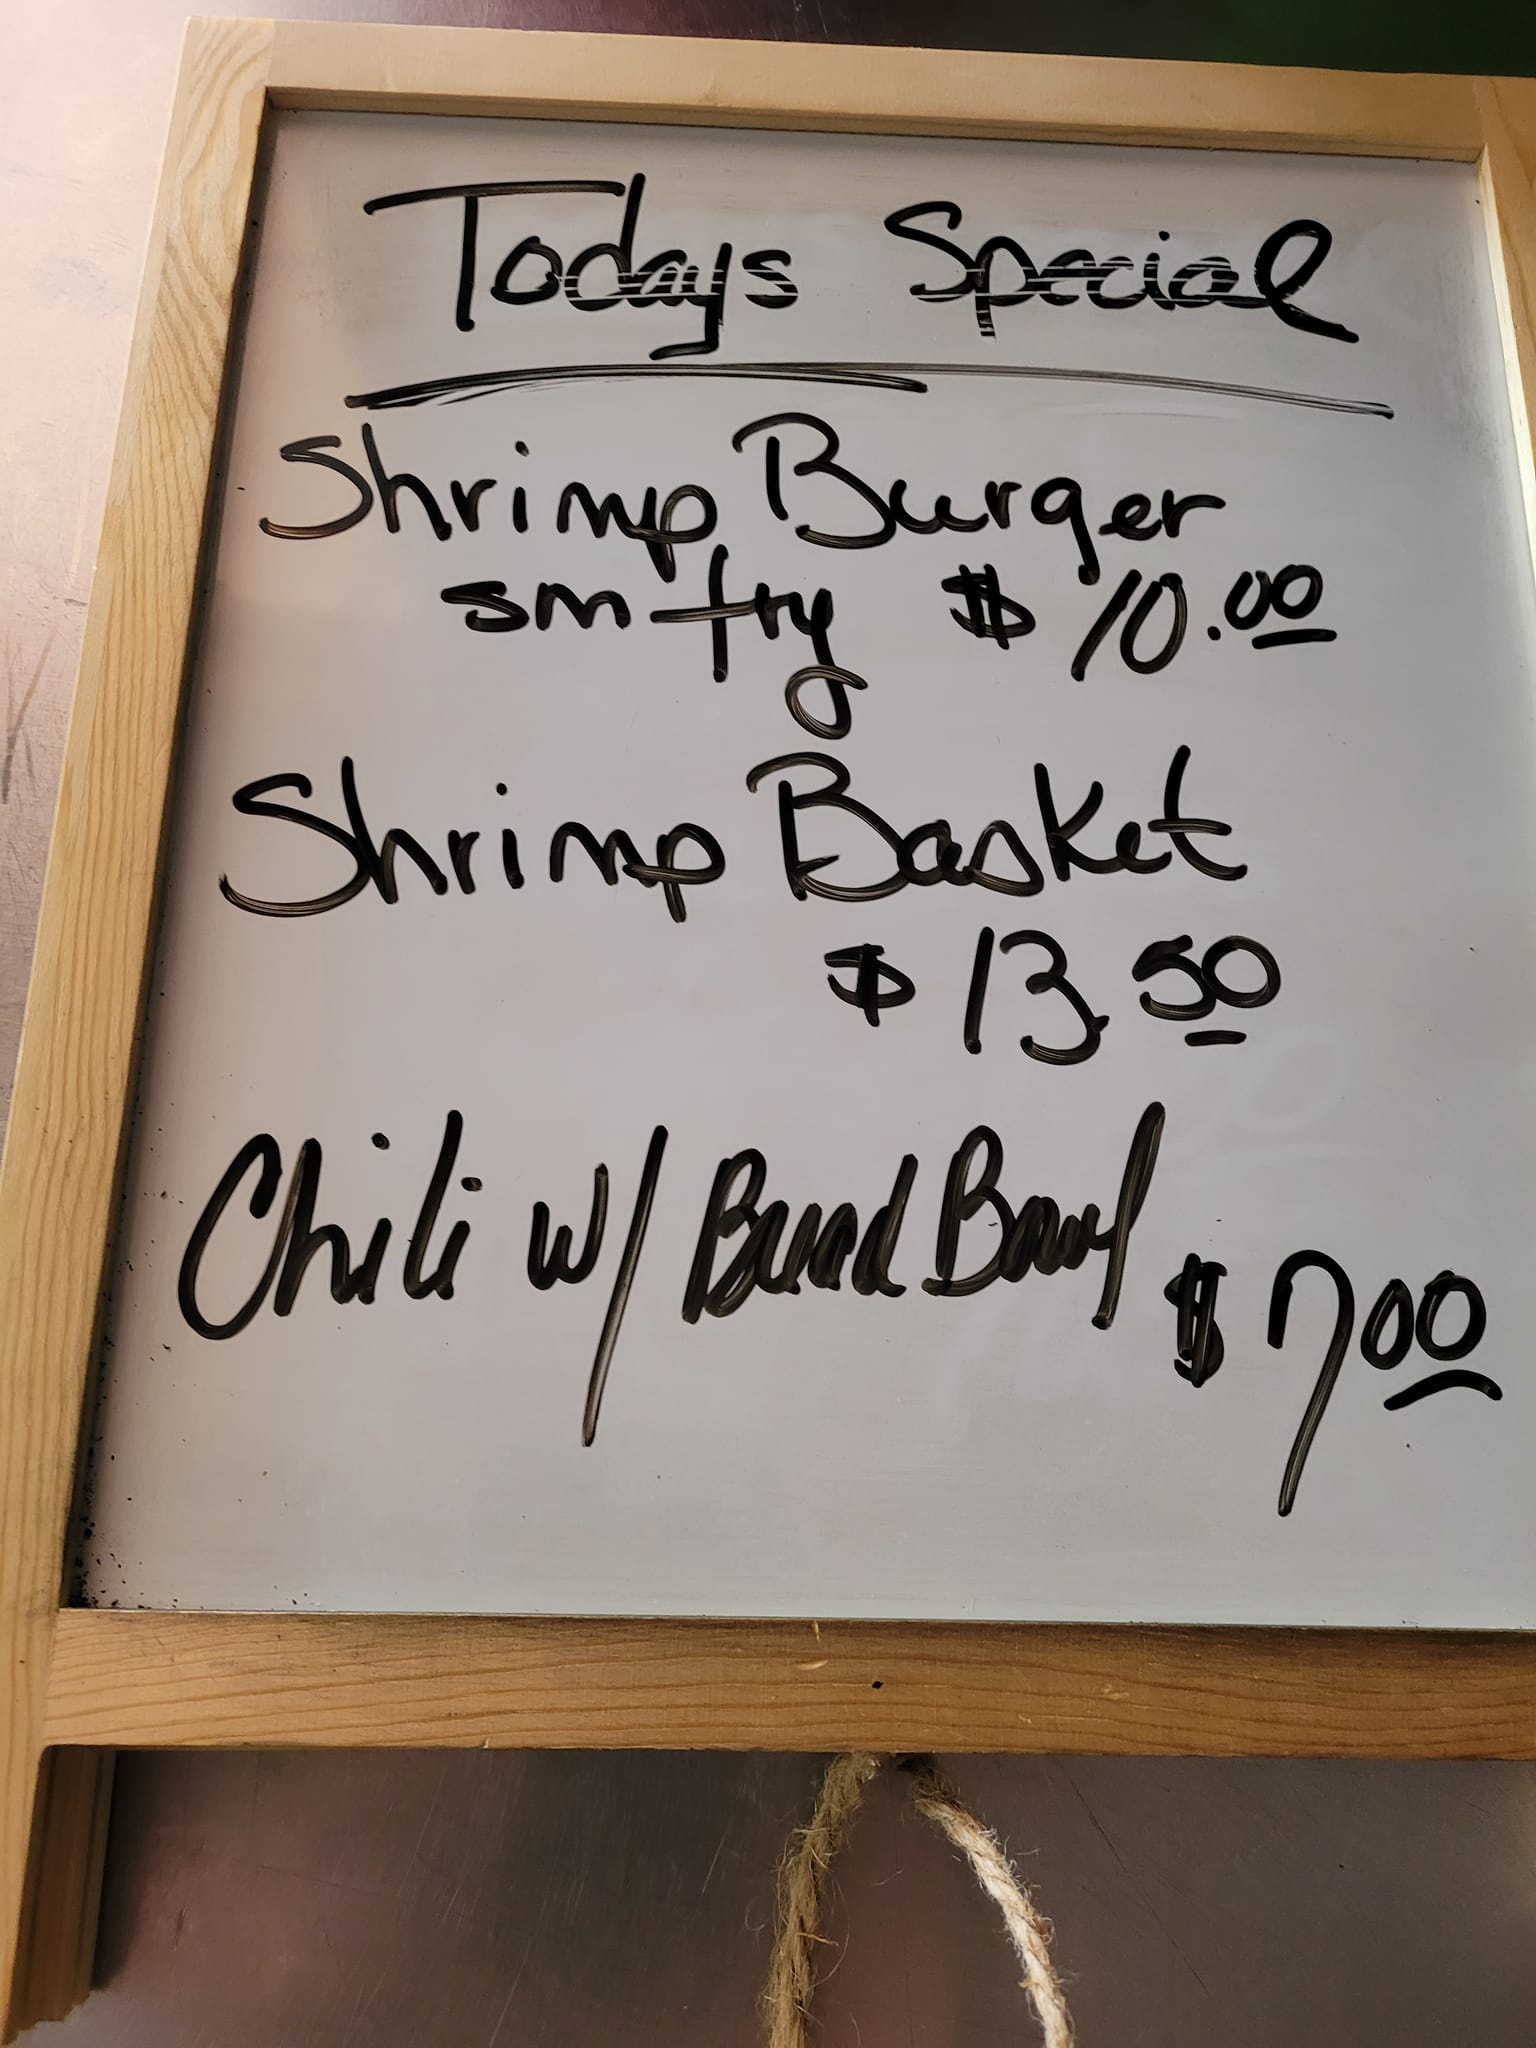 Todays Special
Shrimp Burger
sm fry $10.00
Shrimp Basket
$13.50
Chili w/ Bread Bowl $700